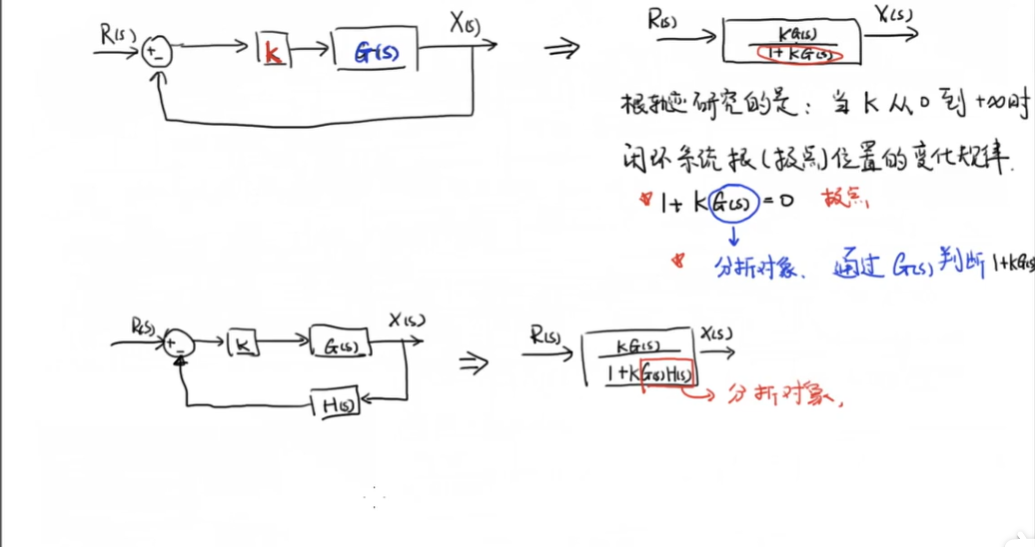 R(s) + - K G(s) X(s) ⇒ R(s) KG(s) / 1+KG(s) X(s)
根轨迹研究的是：当 K 从 0 到 +∞时
闭环系统根(极点)位置的变化规律.
* 1+ K G(s) = 0 极点
* 分析对象. 通过 G(s) 判断 1+KG(s)
R(s) + - K G(s) X(s) H(s) ⇒ R(s) KG(s) / 1+KG(s)H(s) X(s)
分析对象.